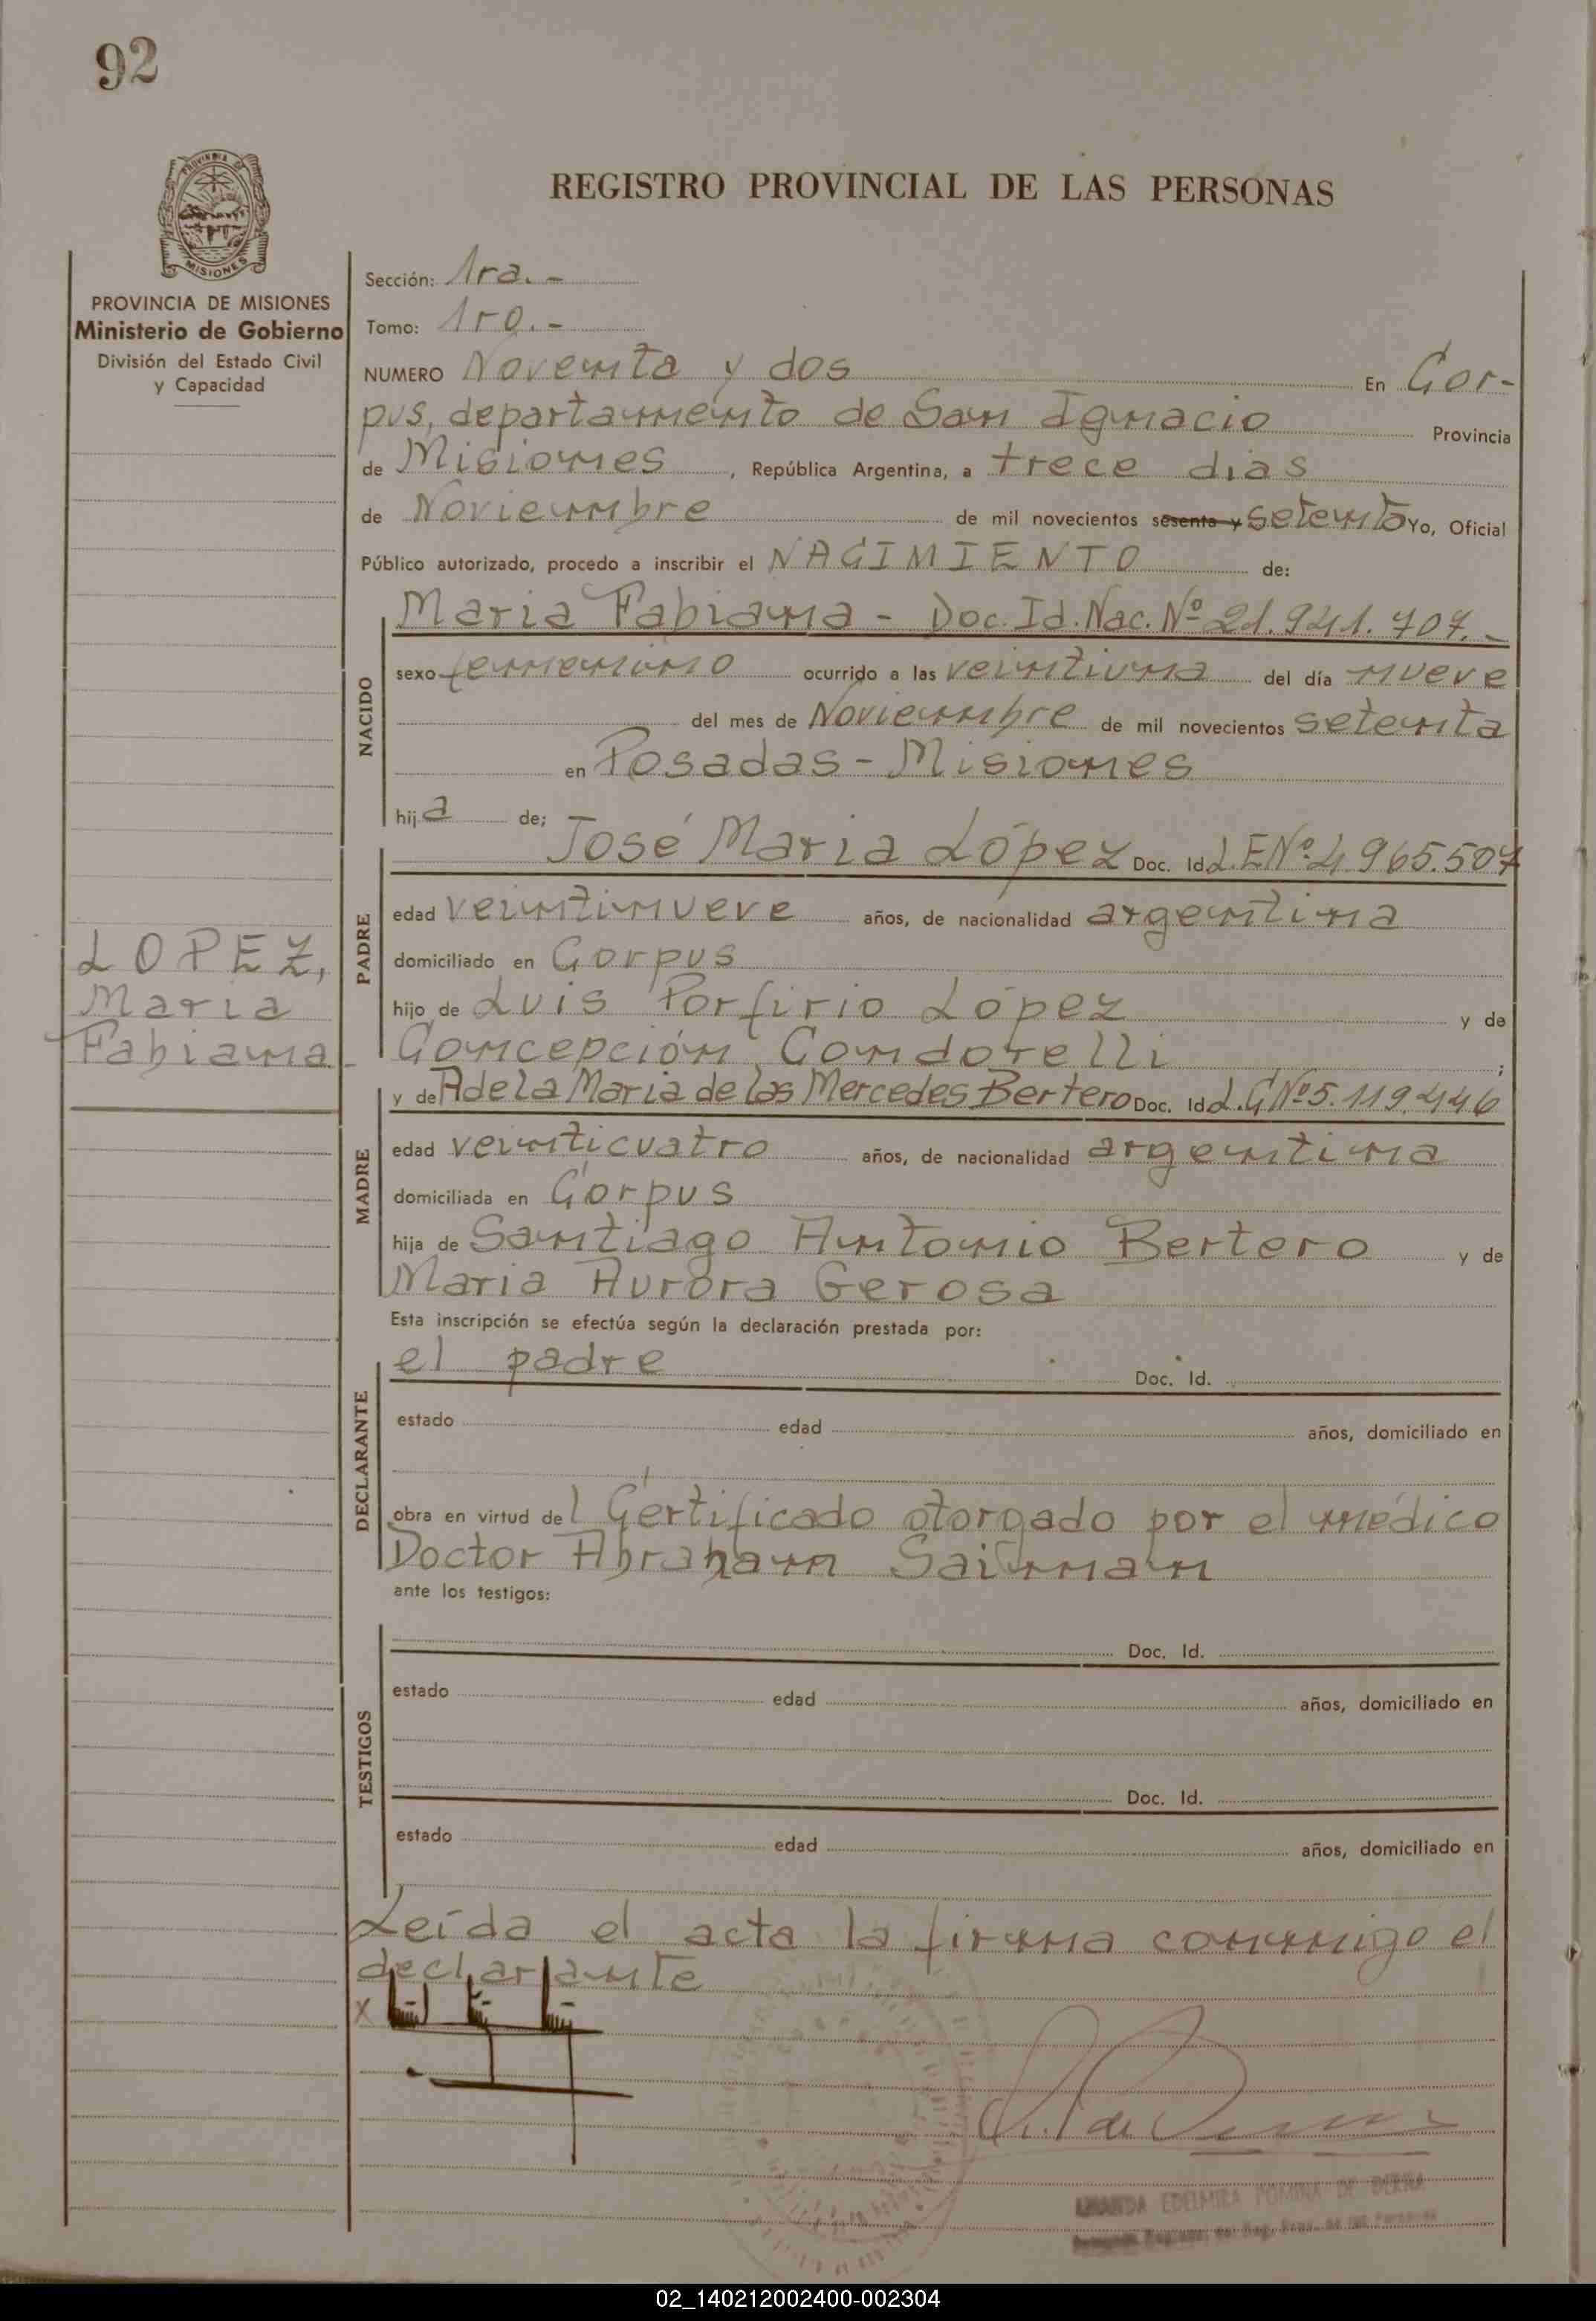 92
PROVINCIA DE
MISIONES
REGISTRO PROVINCIAL DE LAS PERSONAS
PROVINCIA DE MISIONES
Ministerio de Gobierno
División del Estado Civil
y Capacidad
Sección: 1ra.-
Tomo: 1ro.-
NUMERO Noventa y dos En Cor-
pus, departamento de San Ignacio Provincia
de Misiones, República Argentina, a trece dias
de Noviembre de mil novecientos sesenta y setenta Yo, Oficial
Público autorizado, procedo a inscribir el NACIMIENTO de:
NACIDO
Maria Fabiana - Doc. Id. Nac. Nº 21.941.707.-
sexo femenino ocurrido a las veintiuna del día nueve
del mes de Noviembre de mil novecientos setenta
en Posadas - Misiones
hija de;
PADRE
José Maria López Doc. Id L.E Nº 4.965.507
edad veintinueve años, de nacionalidad argentina
domiciliado en Corpus
hijo de Luis Porfirio López y de
Concepción Condorelli ;
LOPEZ,
Maria
Fabiana
MADRE
y de Adela Maria de las Mercedes Bertero Doc. Id L.C Nº 5.119.446
edad veinticuatro años, de nacionalidad argentina
domiciliada en Corpus
hija de Santiago Antonio Bertero y de
Maria Aurora Gerosa
Esta inscripción se efectúa según la declaración prestada por:
DECLARANTE
el padre Doc. Id.
estado edad años, domiciliado en
obra en virtud del Certificado otorgado por el médico
Doctor Abraham
ante los testigos:
TESTIGOS
Doc. Id.
estado edad años, domiciliado en
Doc. Id.
estado edad años, domiciliado en
Leída el acta la firma conmigo el
declarante
X
EDELMIRA DE
02_140212002400-002304